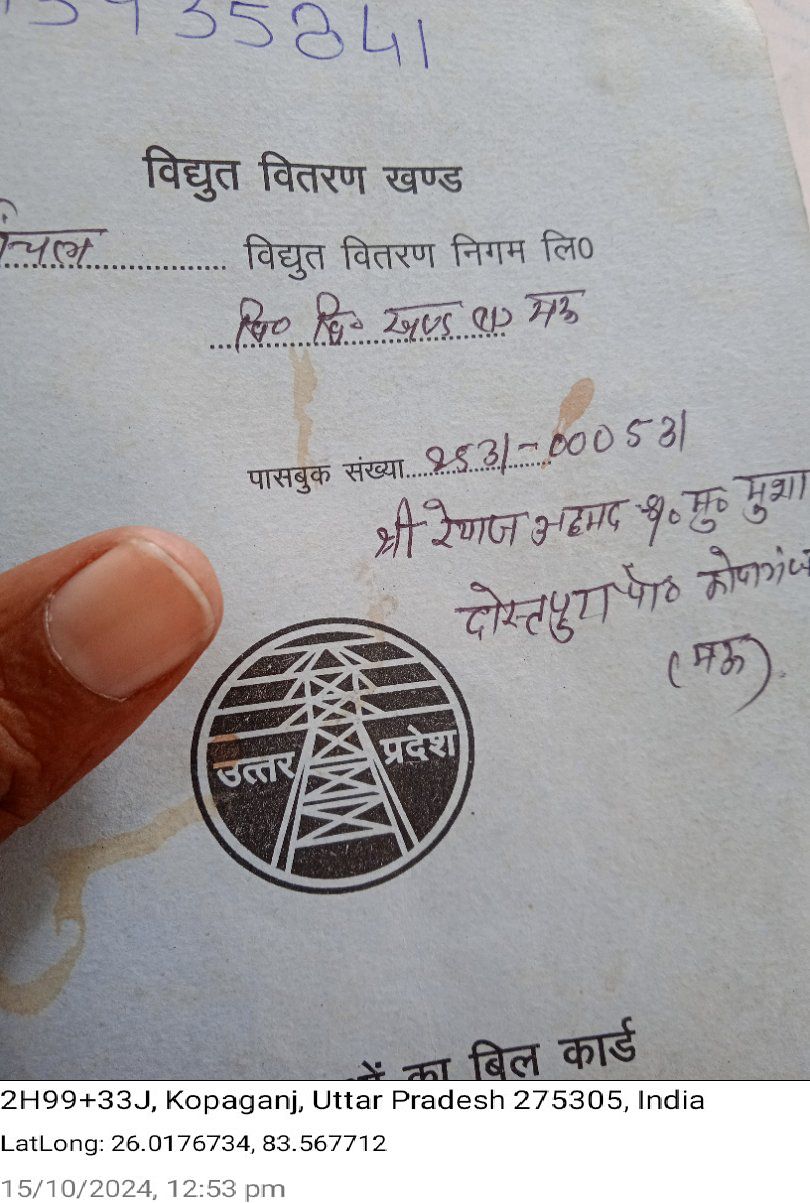 35841
विद्युत वितरण खण्ड
विद्युत वितरण निगम लि०
वि० वि० खण्ड मऊ
पासबुक संख्या 2531-000531
श्री अहमद
दोस्तपुरा कोपागंज
(मऊ)
उत्तर प्रदेश
का बिल कार्ड
2H99+33J, Kopaganj, Uttar Pradesh 275305, India
LatLong: 26.0176734, 83.567712
15/10/2024, 12:53 pm